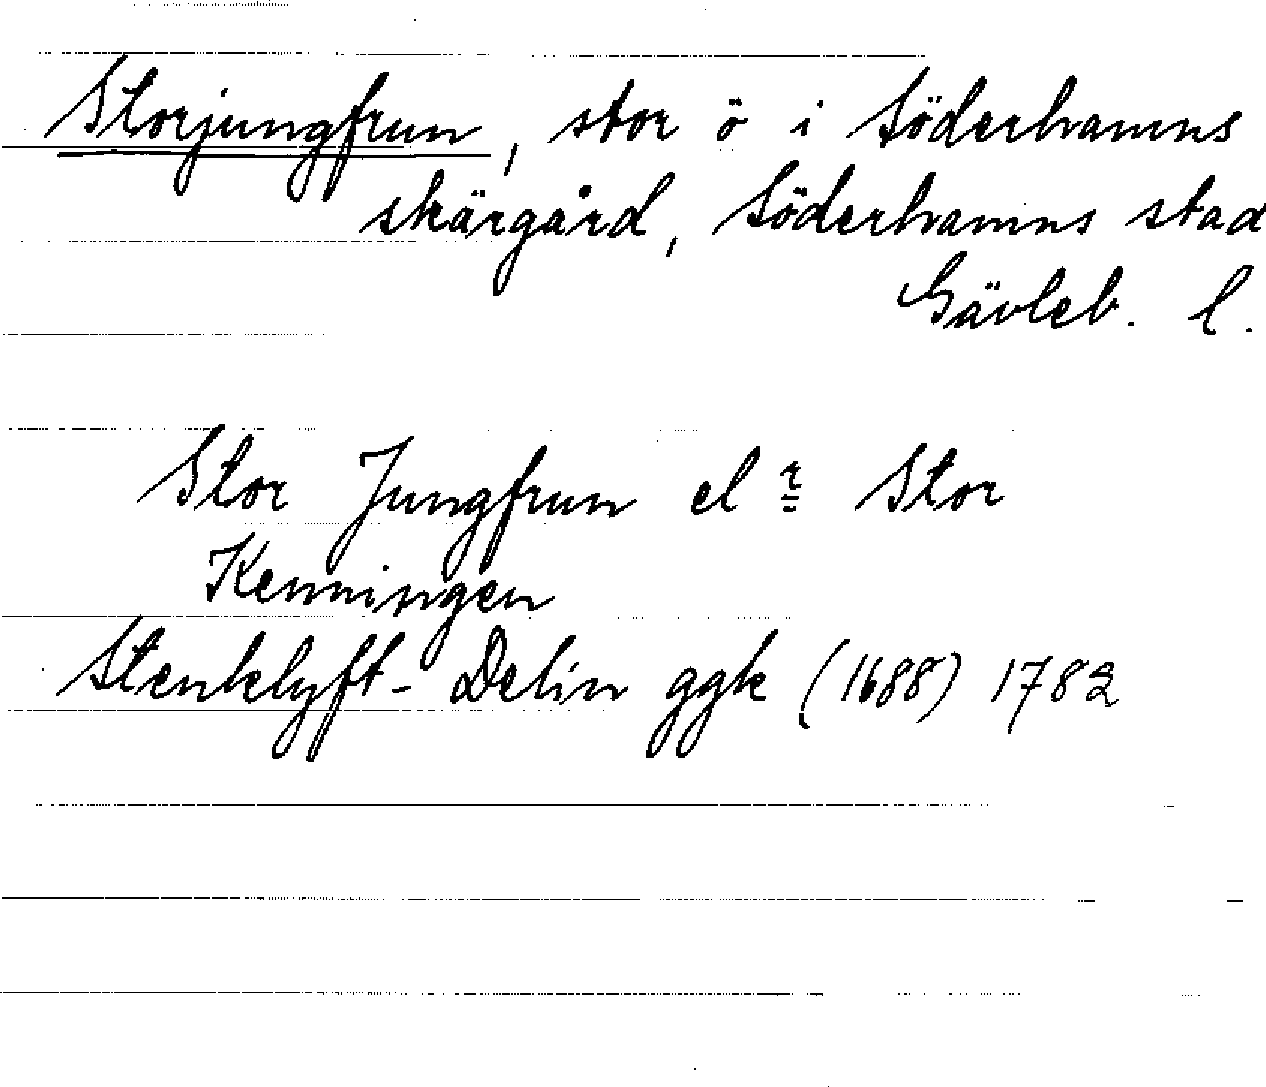 Storjungfrun, stor ö i Söderhamns
skärgård, Söderhamns stad
Gävleb. l.
Stor Jungfrun el r Stor
Kenningen
Stenklyft - Delin ggk (1688) 1782